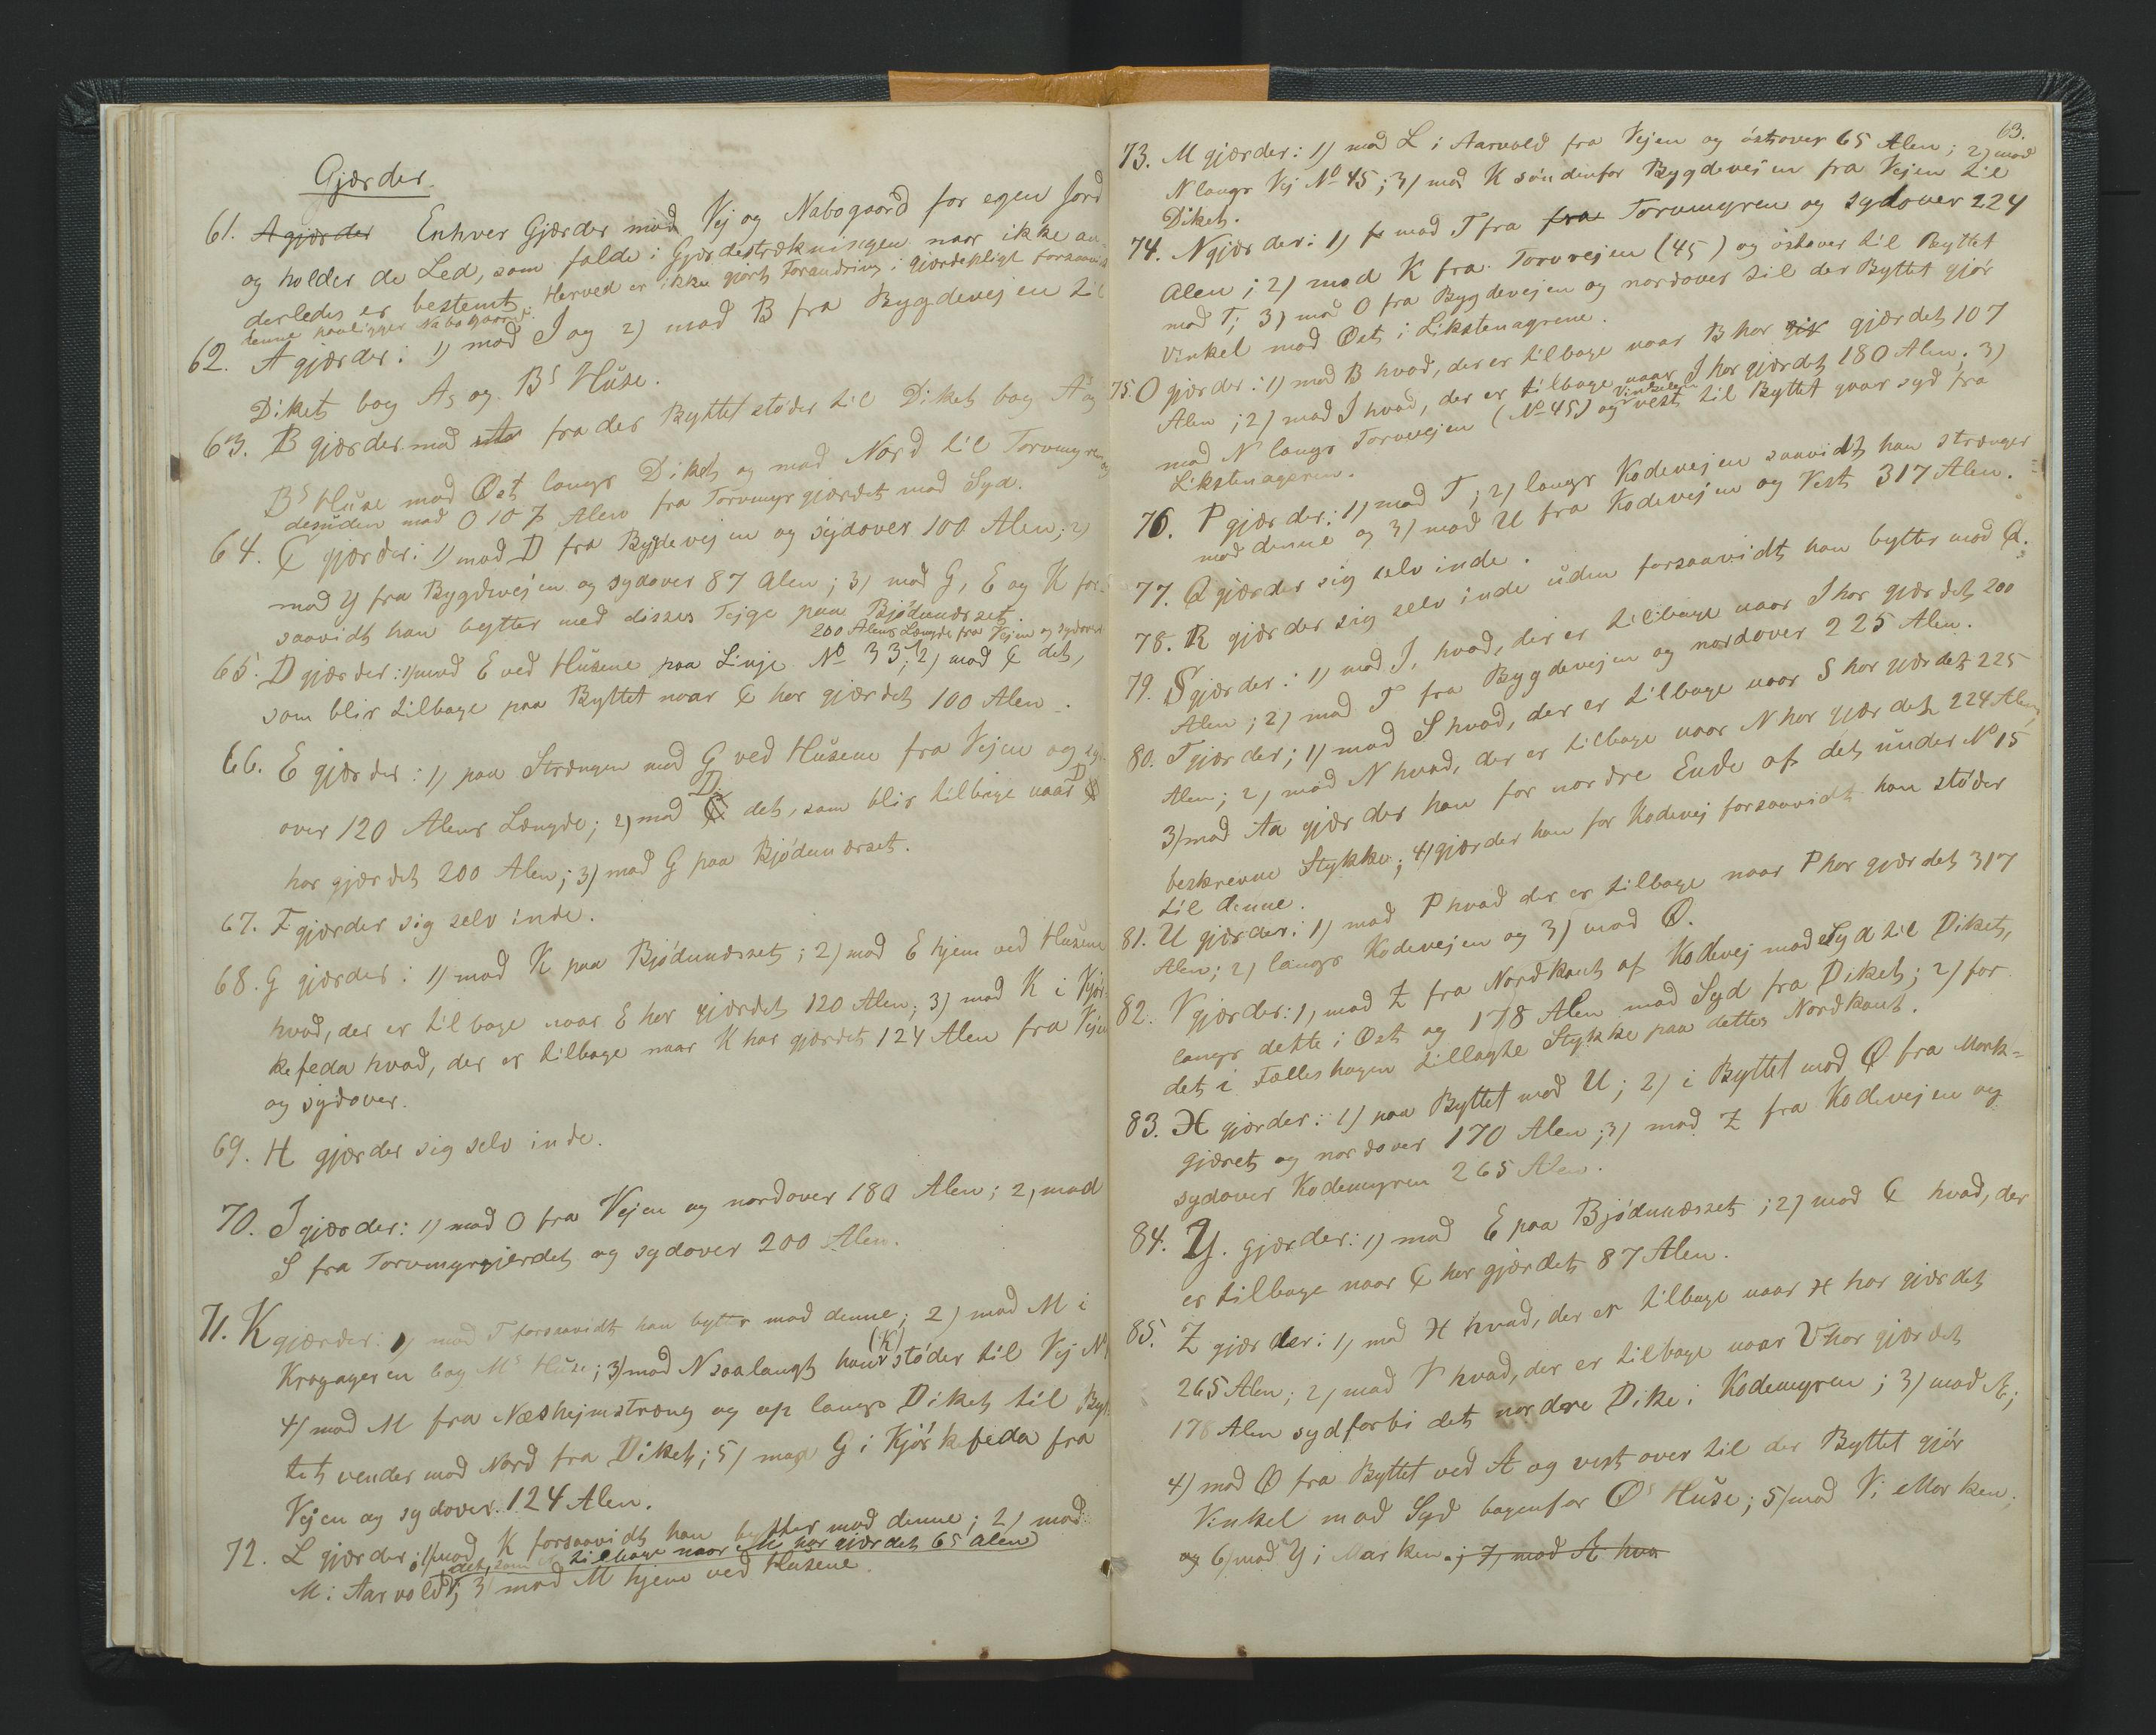 Gjærder.
61. A gjærder Enhver Gjærder mod Vej og Nabogaard for egen Jord
og holder de Led, som falde i Gjærdestrækningen naar ikke an-
derledes er bestemt. Herved er ikke gjort Forandring i gjærdepligt forsaavidt
denne paaligger Nabogaard.
62. A gjærder: 1) mod J og 2) mod B fra Bygdevejen til
Diket bag As og Bs Huse.
63. B gjærder mod fra der Byttet støder til Diket bag As og
Bs Huse mod Øst langs Diket og mod Nord til Torvmyren og
desuden mod O 107 Alen fra Torvmyrgjærdet mod Syd.
64. C gjærder: 1) mod D fra Bygdevejen og sydover 100 Alen; 2)
mod Y fra Bygdevejen og sydover 87 Alen; 3) mod G, E og K for-
saavidt han bytter med disses Tejge paa Bjødnneset.
200 Alens Længde fra Vejen og sydover
65. D gjærder: 1) mod E ved Husene paa Linje No 33; 2) mod C det,
som blir tilbage paa Byttet naar C har gjærdet 100 Alen.
66. E gjærder: 1) paa Strængen mod G ved Husene fra Vejen og syd-
over 120 Alens Længde; 2) mod C D det, som blir tilbage naar C D
har gjærdet 200 Alen; 3) mod G paa Bjødnneset.
67. F gjærder sig selv inde.
68. G gjærder: 1) mod K paa Bjødnnesset; 2) mod E hjem ved Husene
hvad, der er tilbage naar E har gjærdet 120 Alen; 3) mod K i Kjør-
kefeda hvad, der er tilbage naar K har gjærdet 124 Alen fra Vejen
og sydover.
69. H gjærder sig selv inde.
70. J gjærder: 1) mod O fra Vejen og nordover 180 Alen; 2) mod
S fra Torvmyrgjerdet og sydover 200 Alen.
71. K gjærder: 1) mod T forsaavidt han bytter mod denne; 2) mod M i
Kragageren bag Ms Huse; 3) mod N saalangt han (K) støder til Vej No
4) mod M fra Næshejmstræng og op langs Diket til Byt-
tet vender mod Nord fra Diket; 5) mod G i Kjørkefeda fra
Vejen og sydover 124 Alen.
72. L gjærder: 1) mod K forsaavidt han bytter mod denne; 2) mod
det, som er tilbage naar M har gjærdet 65 Alen
M i Aarvold; 3) mod M hjem ved Husene.
63.
73. M gjærder: 1) mod L i Aarvold fra Vejen og østover 65 Alen; 2) mod
N langs Vej No 45; 3) mod K søndenfor Bygdevejen fra Vejen til
Diket.
74. N gjærder: 1) mod T fra fra Torvmyren og sydover 224
Alen; 2) mod K fra Torvvejen (45) og østover til Byttet
mod T; 3) mod O fra Bygdevejen og nordover til der Byttet gjør
Vinkel mod Øst i Likstenagrene.
75. O gjærder: 1) mod B hvad, der er tilbage naar B har gjærdet 107
Alen; 2) mod J hvad, der er tilbage naar J har gjærdet 180 Alen; 3)
mod N langs Torvvejen (No 45) og vest til Byttet gaar syd fra
Likstenageren.
76. P gjærder: 1) mod T; 2) langs Kodevejen saavidt han strænger
mod denne og 3) mod U fra Kodevejen og Vest 317 Alen.
77. Q gjærder sig selv inde.
78. R gjærder sig selv inde uden forsaavidt han bytter mod Q.
79. S gjærder: 1) mod J, hvad, der er tilbage naar J har gjærdet 200
Alen; 2) mod T fra Bygdevejen og nordover 225 Alen.
80. T gjærder; 1) mod S hvad, der er tilbage naar S har gjærdet 225
Alen; 2) mod N hvad, der er tilbage naar N har gjærdet 224 Alen
3) mod Aa gjærder han for nordre Ende af det under No 15
beskrevne Stykke; 4) gjærder han for Kodevej forsaavidt han støder
til denne.
81. U gjærder: 1) mod P hvad der er tilbage naar P har gjærdet 317
Alen; 2) langs Kodevejen og 3) mod Ø.
82. V gjærder: 1) mod Z fra Nordkant af Kodevej mod Syd til Diket,
langs dette i Øst og 178 Alen mod Syd fra Diket; 2) for
det i Fælleshagen tillagte Stykke paa dettes Nordkant.
83. H gjærder: 1) paa Byttet mod U; 2) i Byttet mod Ø fra Mark-
gjæret og nordover 170 Alen; 3) mod Z fra Kodevejen og
sydover Kodemyren 265 Alen.
84. Y. gjærder: 1) mod E paa Bjødnnesset; 2) mod C hvad, der
er tilbage naar C har gjærdet 87 Alen.
85. Z gjærder: 1) mod H hvad, der er tilbage naar H har gjærdet
265 Alen; 2) mod V hvad, der er tilbage naar V har gjærdet
178 Alen sydforbi det nordre Dike i Kodemyren; 3) mod Æ;
4) mod Ø fra Byttet ved Æ og vestover til der Byttet gjør
Vinkel mod Syd bagenfor Øs Huse; 5) mod V i Marken;
og 6) mod Y i Marken.; 7) mod Æ hva